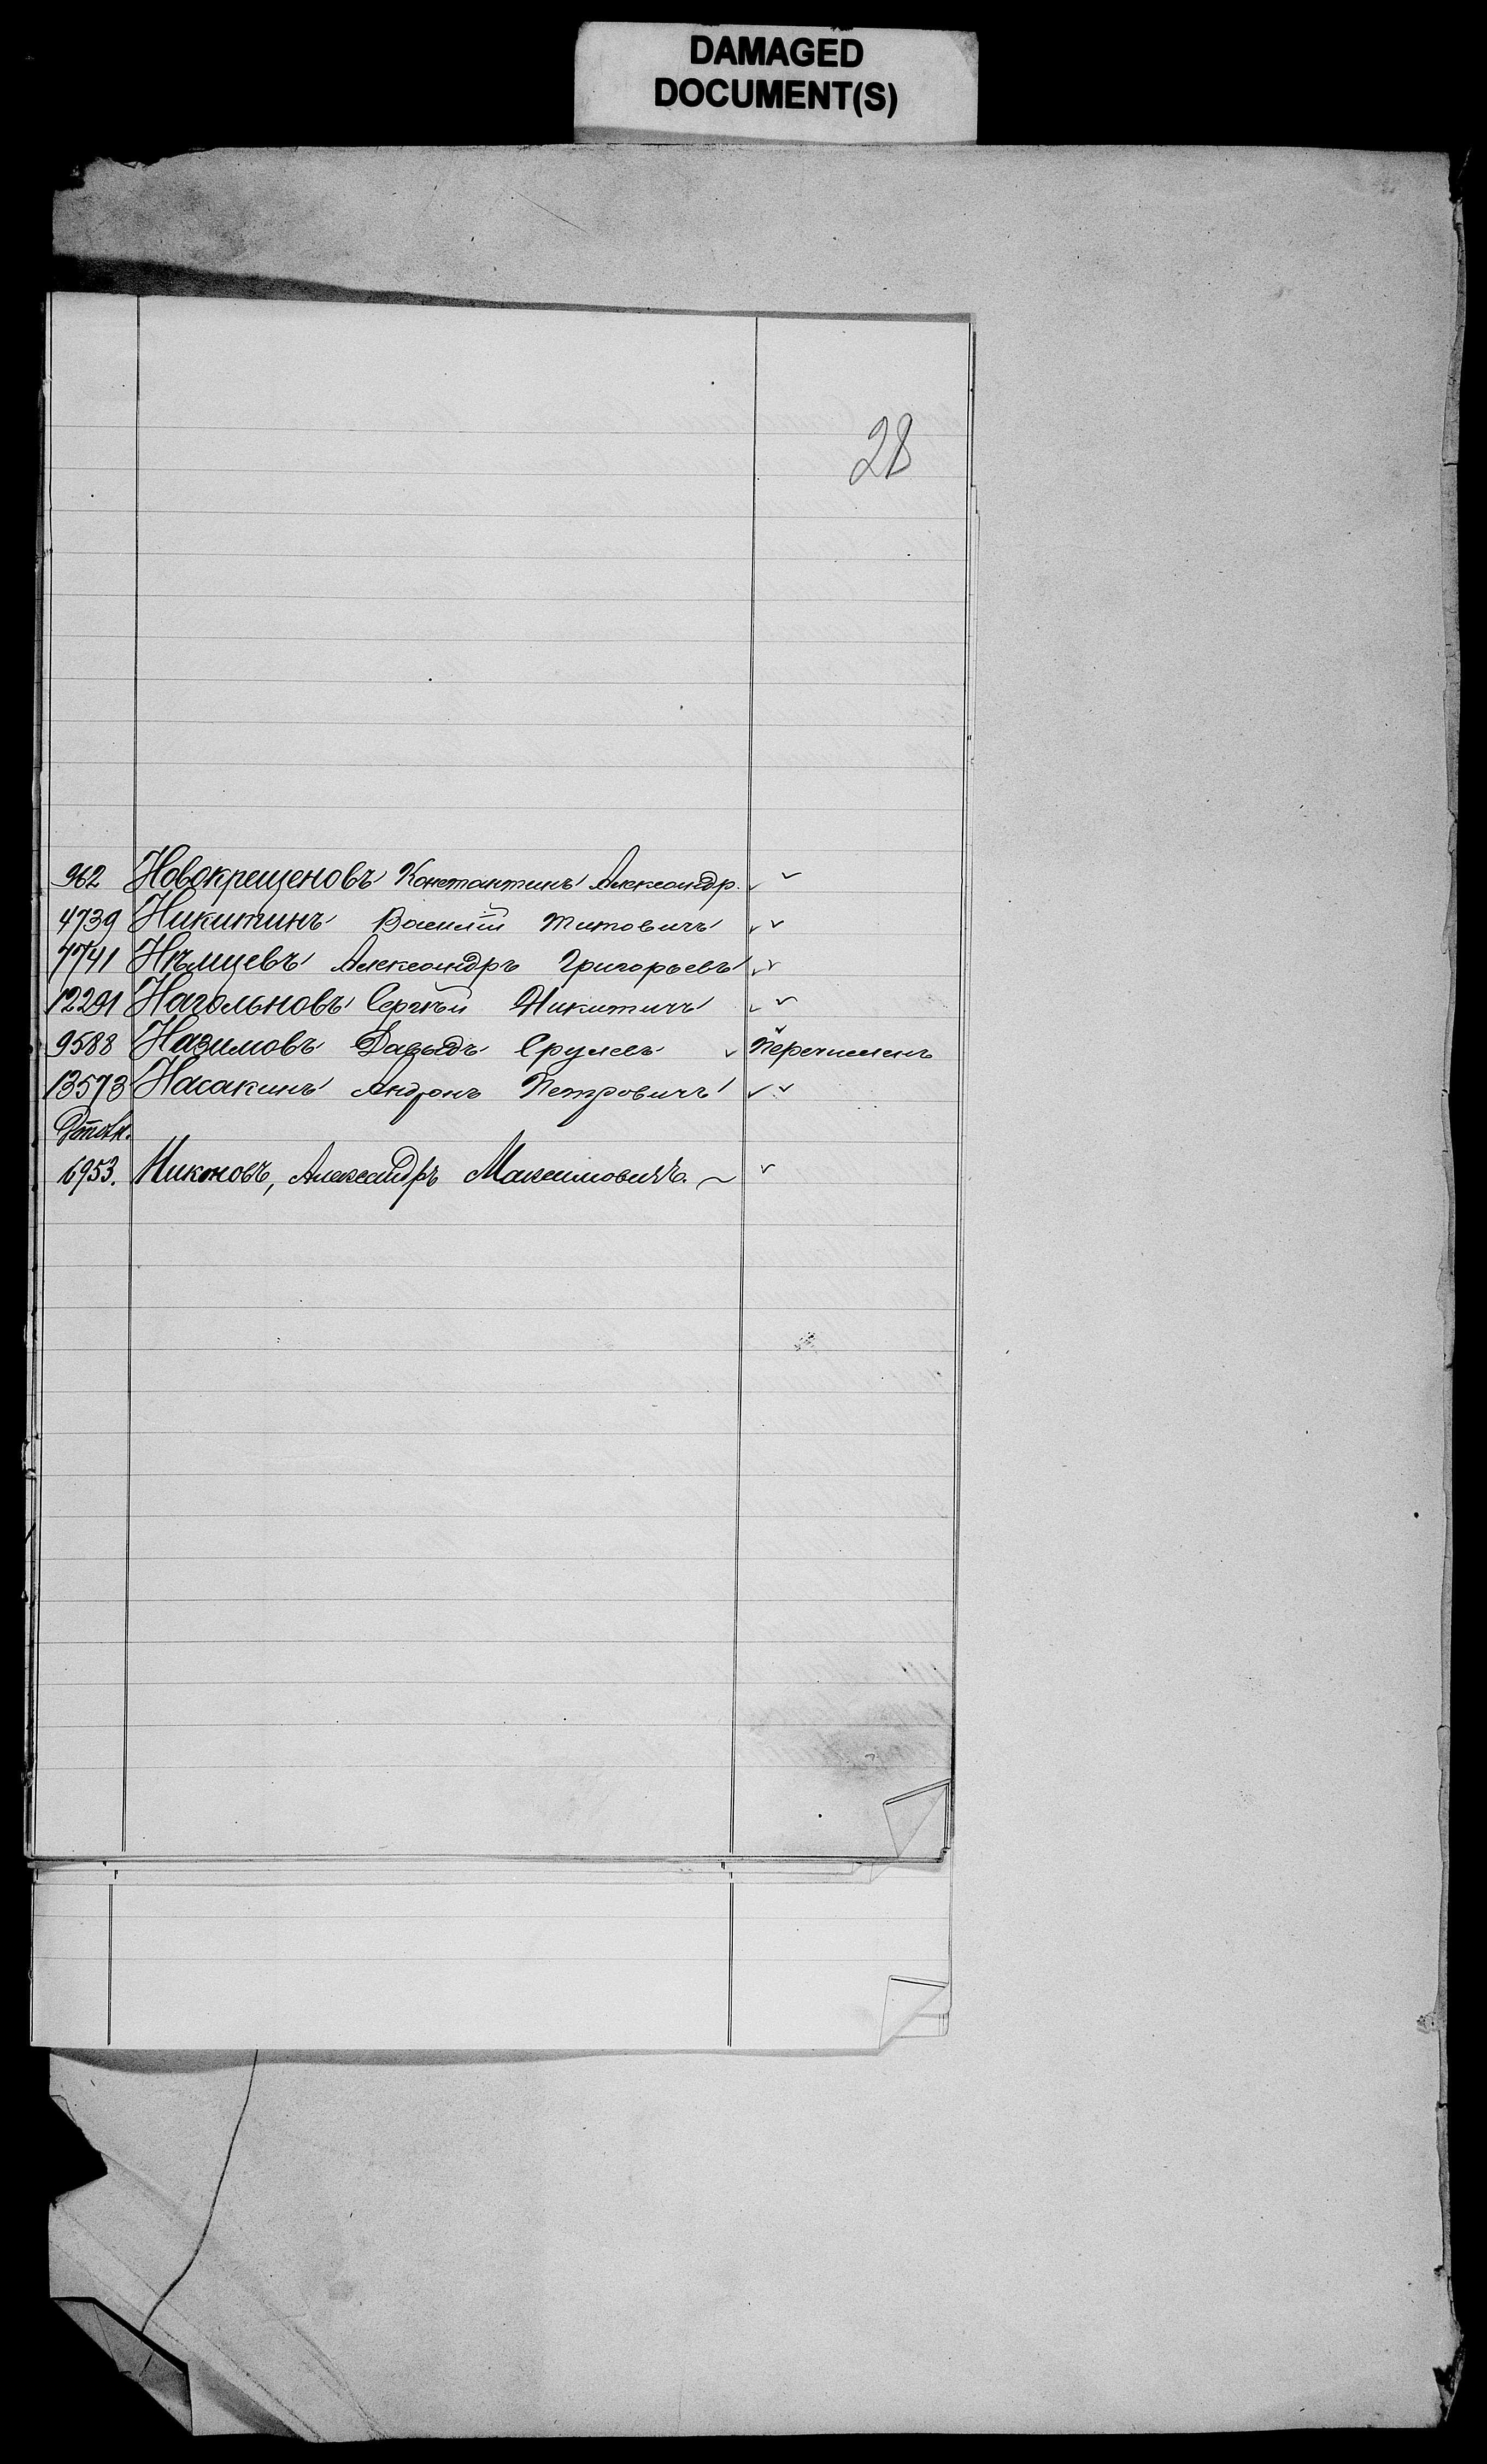 DAMAGED
DOCUMENT(S)
28
962 Новокрещеновъ Константинъ Александр.
4739 Никитинъ Василій Титовичъ
7741 Нѣмцевъ Александръ Григорьевъ
12291 Нагольновъ Сергѣй Никитичъ
9588 Назимовъ Давыдъ Срулевъ Перечисленъ
13573 Насакинъ Андронъ Петровичъ
6953. Никоновъ, Александръ Максимовичъ.